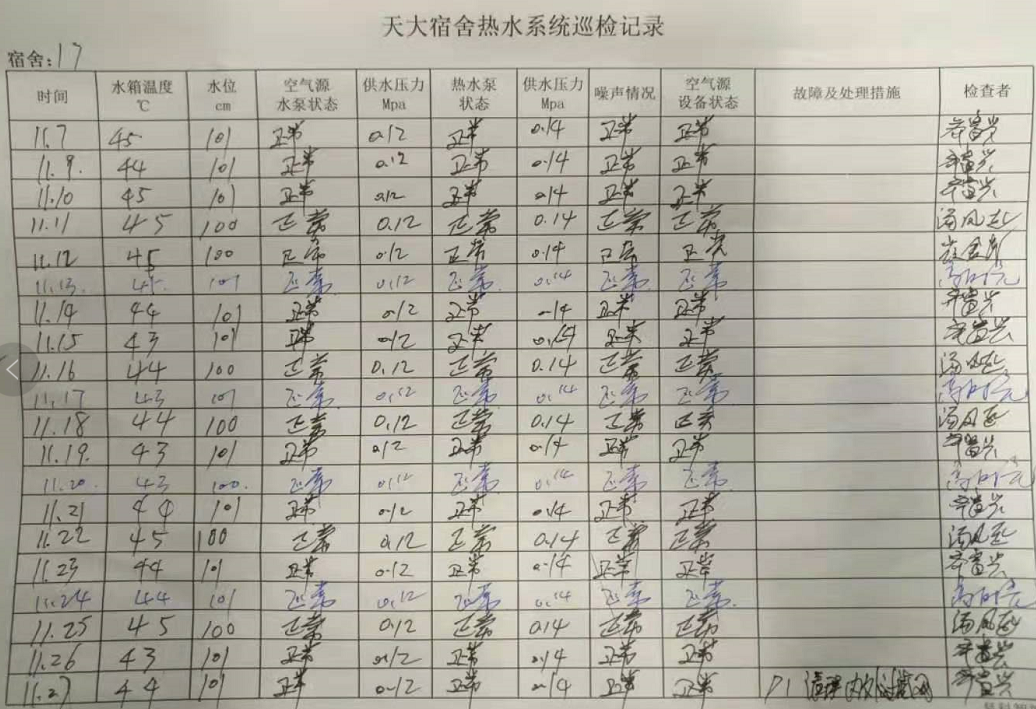 天大宿舍热水系统巡检记录
宿舍:17
时间 水箱温度℃ 水位cm 空气源水泵状态 供水压力Mpa 热水泵状态 供水压力Mpa 噪声情况 空气源设备状态 故障及处理措施 检查者
11.7 45 101 正常 0.12 正常 0.14 正常 正常
11.9. 44 101 正常 0.12 正常 0.14 正常 正常
11.10 45 101 正常 0.12 正常 0.14 正常 正常
11.11 45 100 正常 0.12 正常 0.14 正常 正常
11.12 45 100 正常 0.12 正常 0.14 正常 正常
11.13. 45 101 正常 0.12 正常 0.14 正常 正常
11.14 44 101 正常 0.12 正常 0.14 正常 正常
11.15 43 101 正常 0.12 正常 0.14 正常 正常
11.16 44 100 正常 0.12 正常 0.14 正常 正常
11.17 43 101 正常 0.12 正常 0.14 正常 正常
11.18 44 100 正常 0.12 正常 0.14 正常 正常
11.19. 43 101 正常 0.12 正常 0.14 正常 正常
11.20. 43 100. 正常 0.12 正常 0.14 正常 正常
11.21 44 101 正常 0.12 正常 0.14 正常 正常
11.22 45 100 正常 0.12 正常 0.14 正常 正常
11.23 44 101 正常 0.12 正常 0.14 正常 正常
11.24 44 101 正常 0.12 正常 0.14 正常 正常.
11.25 45 100 正常 0.12 正常 0.14 正常 正常
11.26 43 101 正常 0.12 正常 0.14 正常 正常
11.27 44 101 正常 0.12 正常 0.14 正常 正常